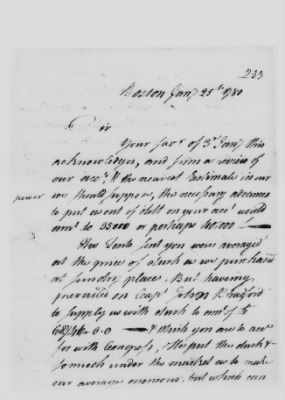 233
Boston Jany 25th 1780
Sir
Your favr of 3d Jany this
acknowledges, and from a review of
our accts & the nearest Estimate in our
power
we should suppose, the necessary advances
to put us out of debt on your acct would
amt to 35000 or perhaps 40,000 £—
The Tents sent you were averaged
at the price of Duck as we purchased
at sundry places. But having
prevailed on Capt John
to supply us with duck to amt of £
68,946-0-0 — & which you are to accot
for with Congress, He put the duck
so much under the market as to make
our average enormous, but which can